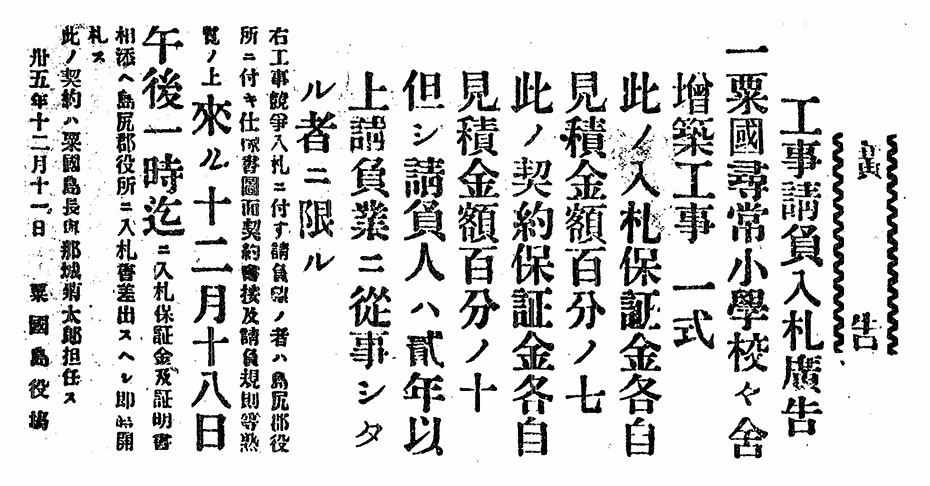 廣告
工事請負入札廣告
一粟國尋常小學校々舍
增築工事 一式
此ノ入札保証金各自
見積金額百分ノ七
此ノ契約保証金各自
見積金額百分ノ十
但シ請負人ハ貳年以
上請負業ニ從事シタ
ル者ニ限ル
右工事競爭入札ニ付す請負望ノ者ハ島尻郡役
所ニ付キ仕樣書圖面契約書按及請負規則等熟
覧ノ上來ル十二月十八日
午後一時迄ニ入札保証金及証明書
相添ヘ島尻郡役所ニ入札書差出スヘシ即時開
札ス
此ノ契約ハ粟國島長與那城菊太郎担任ス
卅五年十二月十一日 粟國島役塲